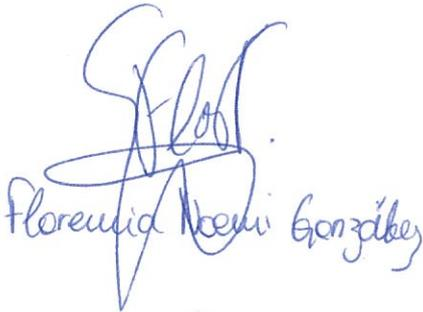 Flor.
Florencia Noemi González